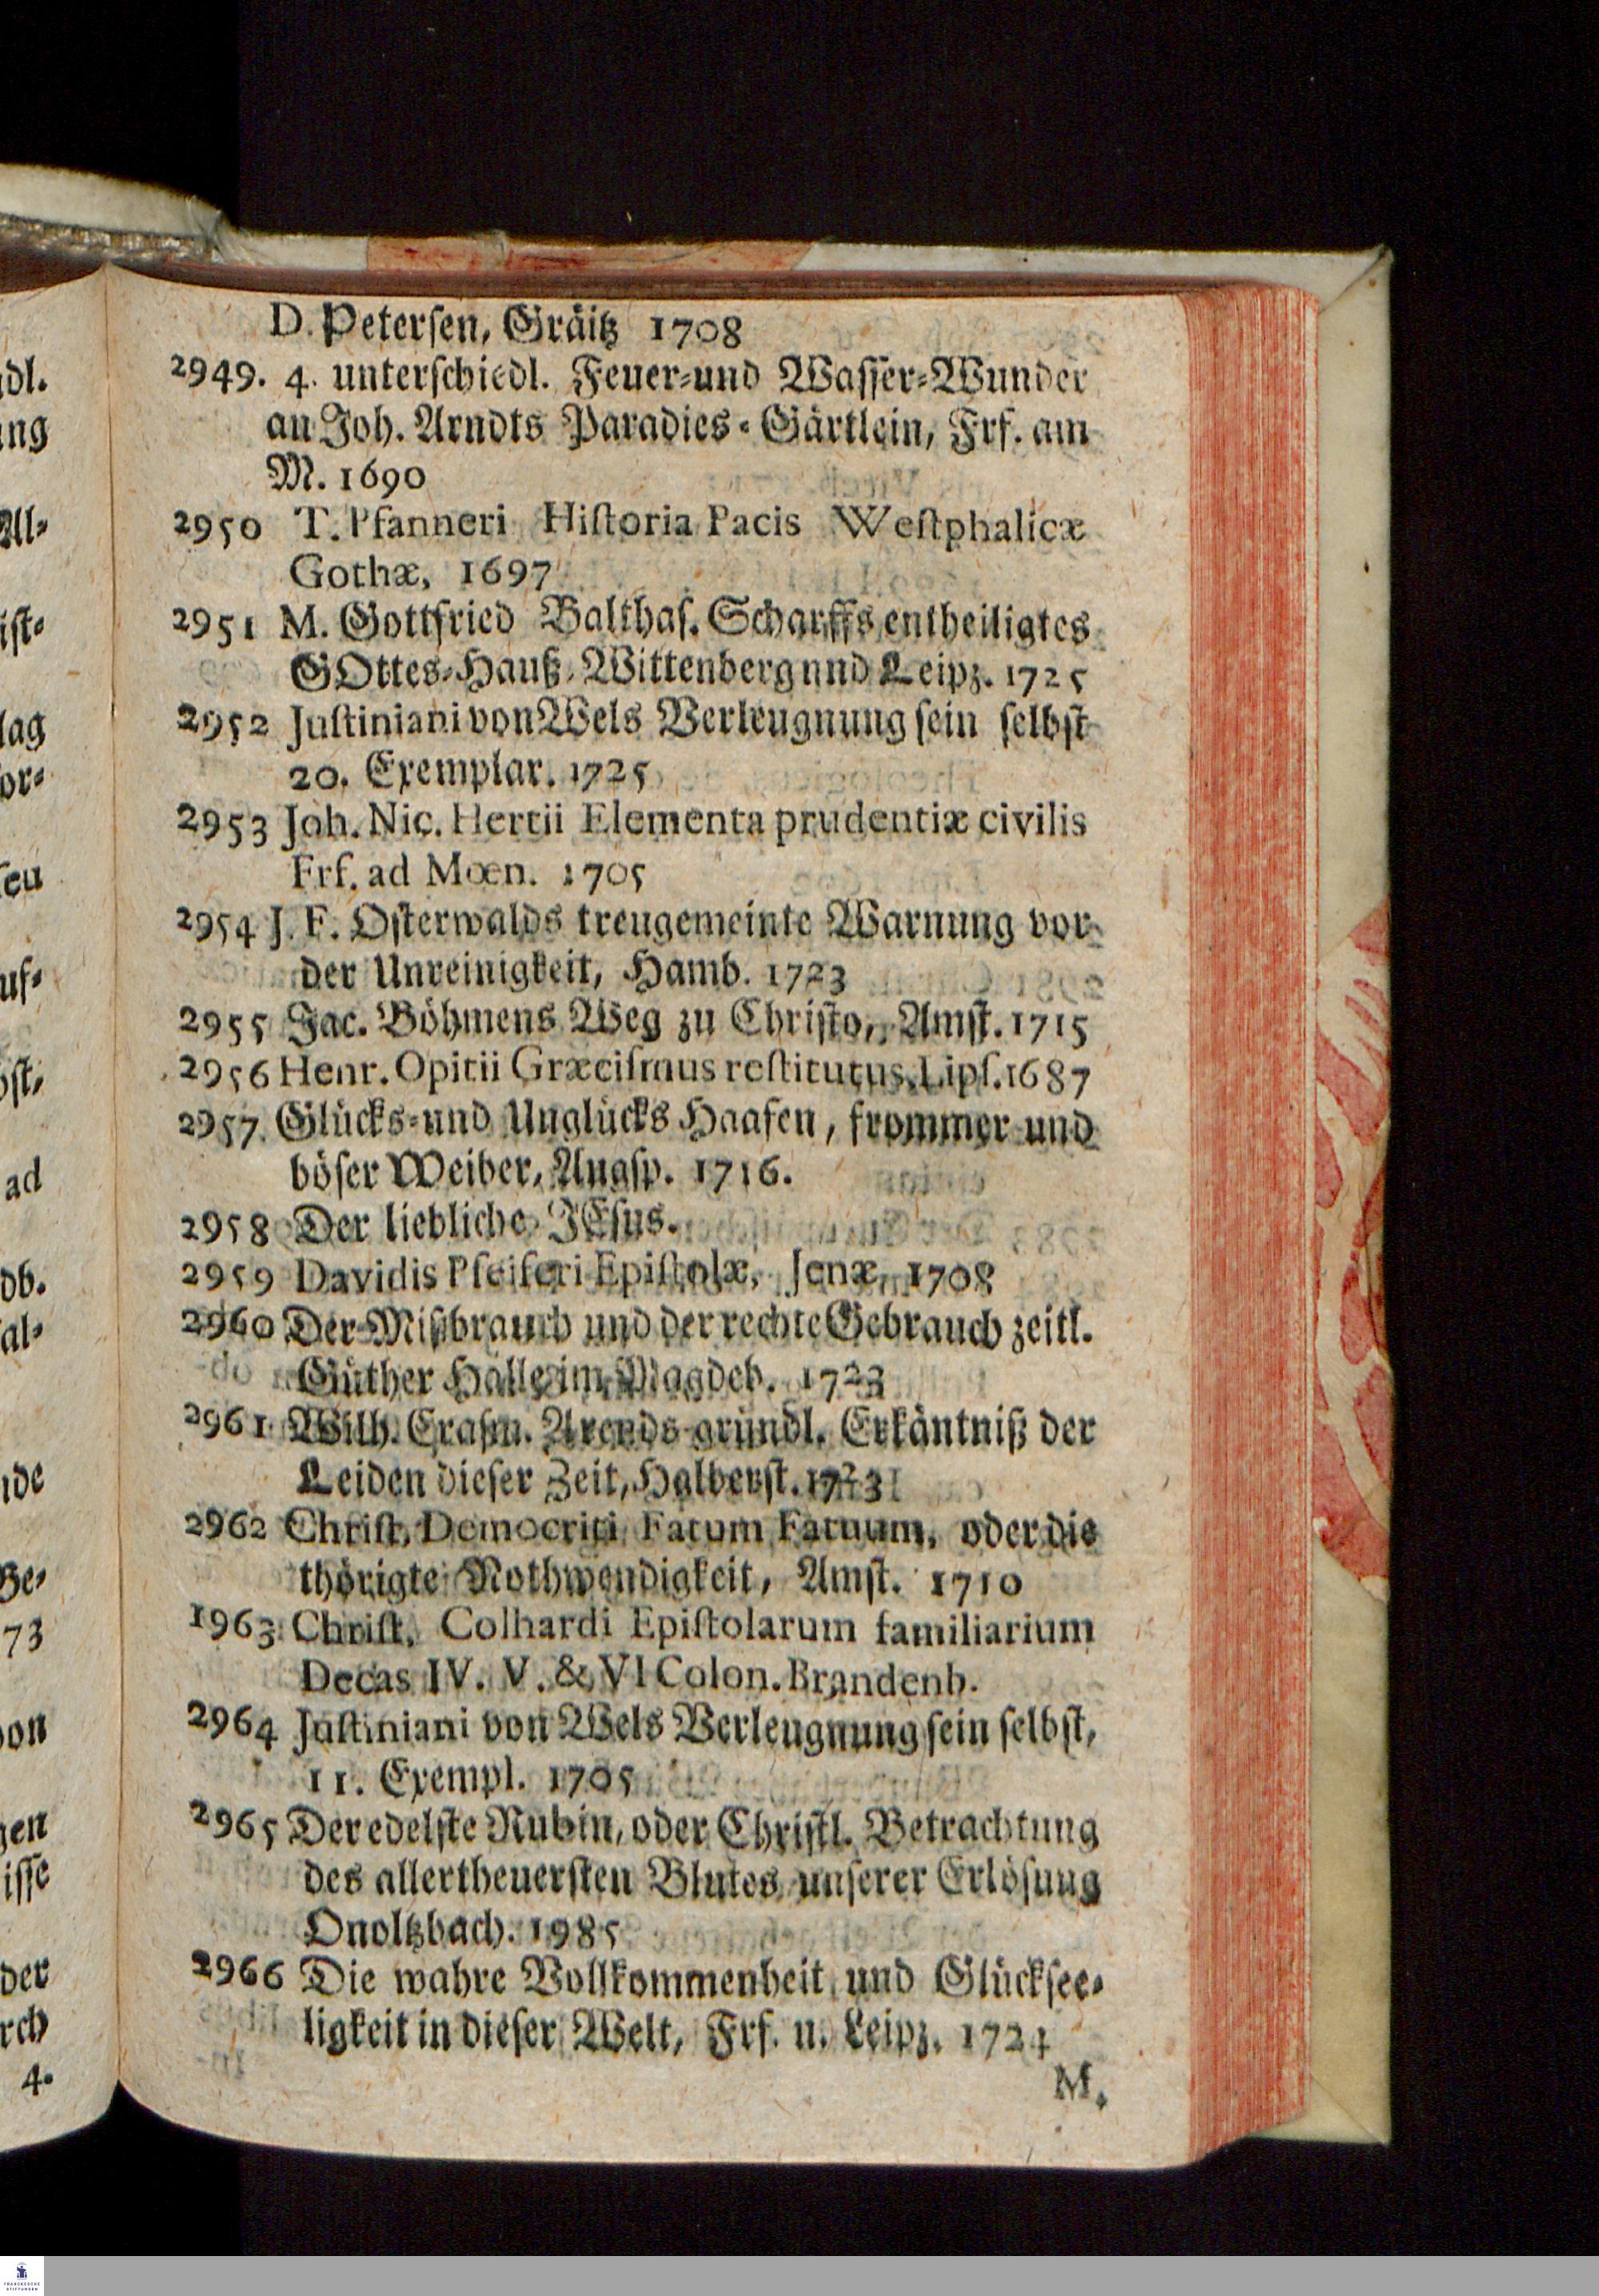 D. Petersen, Gräitz 1708
2949. 4. unterschiedl. Feuer-und Wasser-Wunder
an Joh. Arndts Paradies-Gärtlein, Frf. am
M. 1690
2950 T. Pfanneri Historia Pacis Westphalicæ
Gothæ, 1697
2951 M. Gottfried Balthas. Scharffs entheiligtes
GOttes-Hauß, Wittenberg und Leipz. 1725
2952 Justiniani von Wels Verleugnung sein selbst
20. Exemplar. 1725
2953 Joh. Nic. Hertii Elementa prudentiæ civilis
Frf. ad Mœn. 1705
2954 J. F. Osterwalds treugemeinte Warnung vor
der Unreinigkeit, Hamb. 1723
2955 Jac. Böhmens Weg zu Christo, Amst. 1715
2956 Henr. Opitii Græcismus restitutus. Lips. 1687
2957. Glücks-und Unglücks Haafen, frommer und
böser Weiber, Augsp. 1716.
2958 Der liebliche JEsus.
2959 Davidis Pfeiferi Epistolæ, Jenæ, 1708
2960 Der Mißbrauch und der rechte Gebrauch zeitl.
Güther Halle im Magdeb. 1723
2961 Wilh. Erasm. Arends gründl. Erkäntniß der
Leiden dieser Zeit, Halberst. 1723
2962 Christ. Democriti Fatum Fatuum, oder die
thörigte Nothwendigkeit, Amst. 1710
1963 Christ. Colhardi Epistolarum familiarium
Decas IV. V. & VI Colon. Brandenb.
2964 Justiniani von Wels Verleugnung sein selbst,
11. Exempl. 1705
2965 Der edelste Rubin, oder Christl. Betrachtung
des allertheuersten Blutes unserer Erlösung
Onoltzbach. 1985
2966 Die wahre Vollkommenheit und Glücksee-
ligkeit in dieser Welt, Frf. u. Leipz. 1724
M.